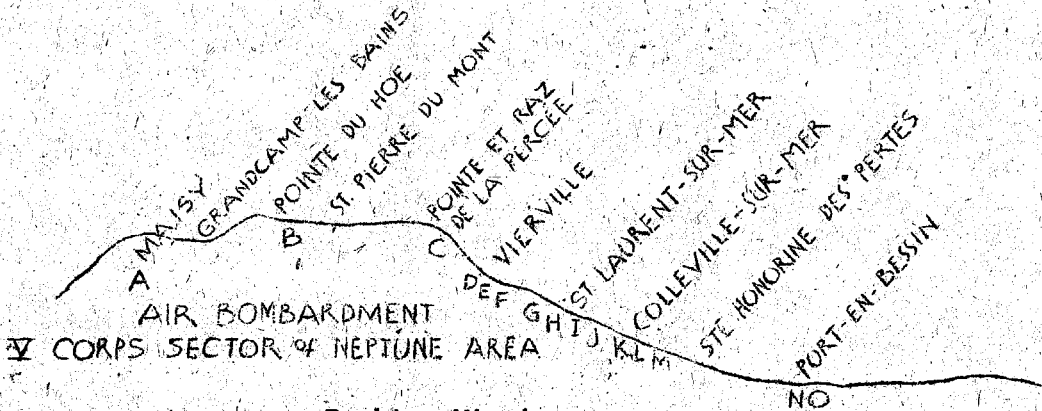 MAISY
GRANDCAMP-LES BAINS
POINTE DU HOE
ST. PIERRE DU MONT
POINTE ET RAZ
DE LA PERCÉE
VIERVILLE
ST LAURENT-SUR-MER
COLLEVILLE-SUR-MER
STE HONORINE DES PERTES
PORT-EN-BESSIN
A
B
C
D E F
G H I J
K L M
N O
AIR BOMBARDMENT
V CORPS SECTOR of NEPTUNE AREA